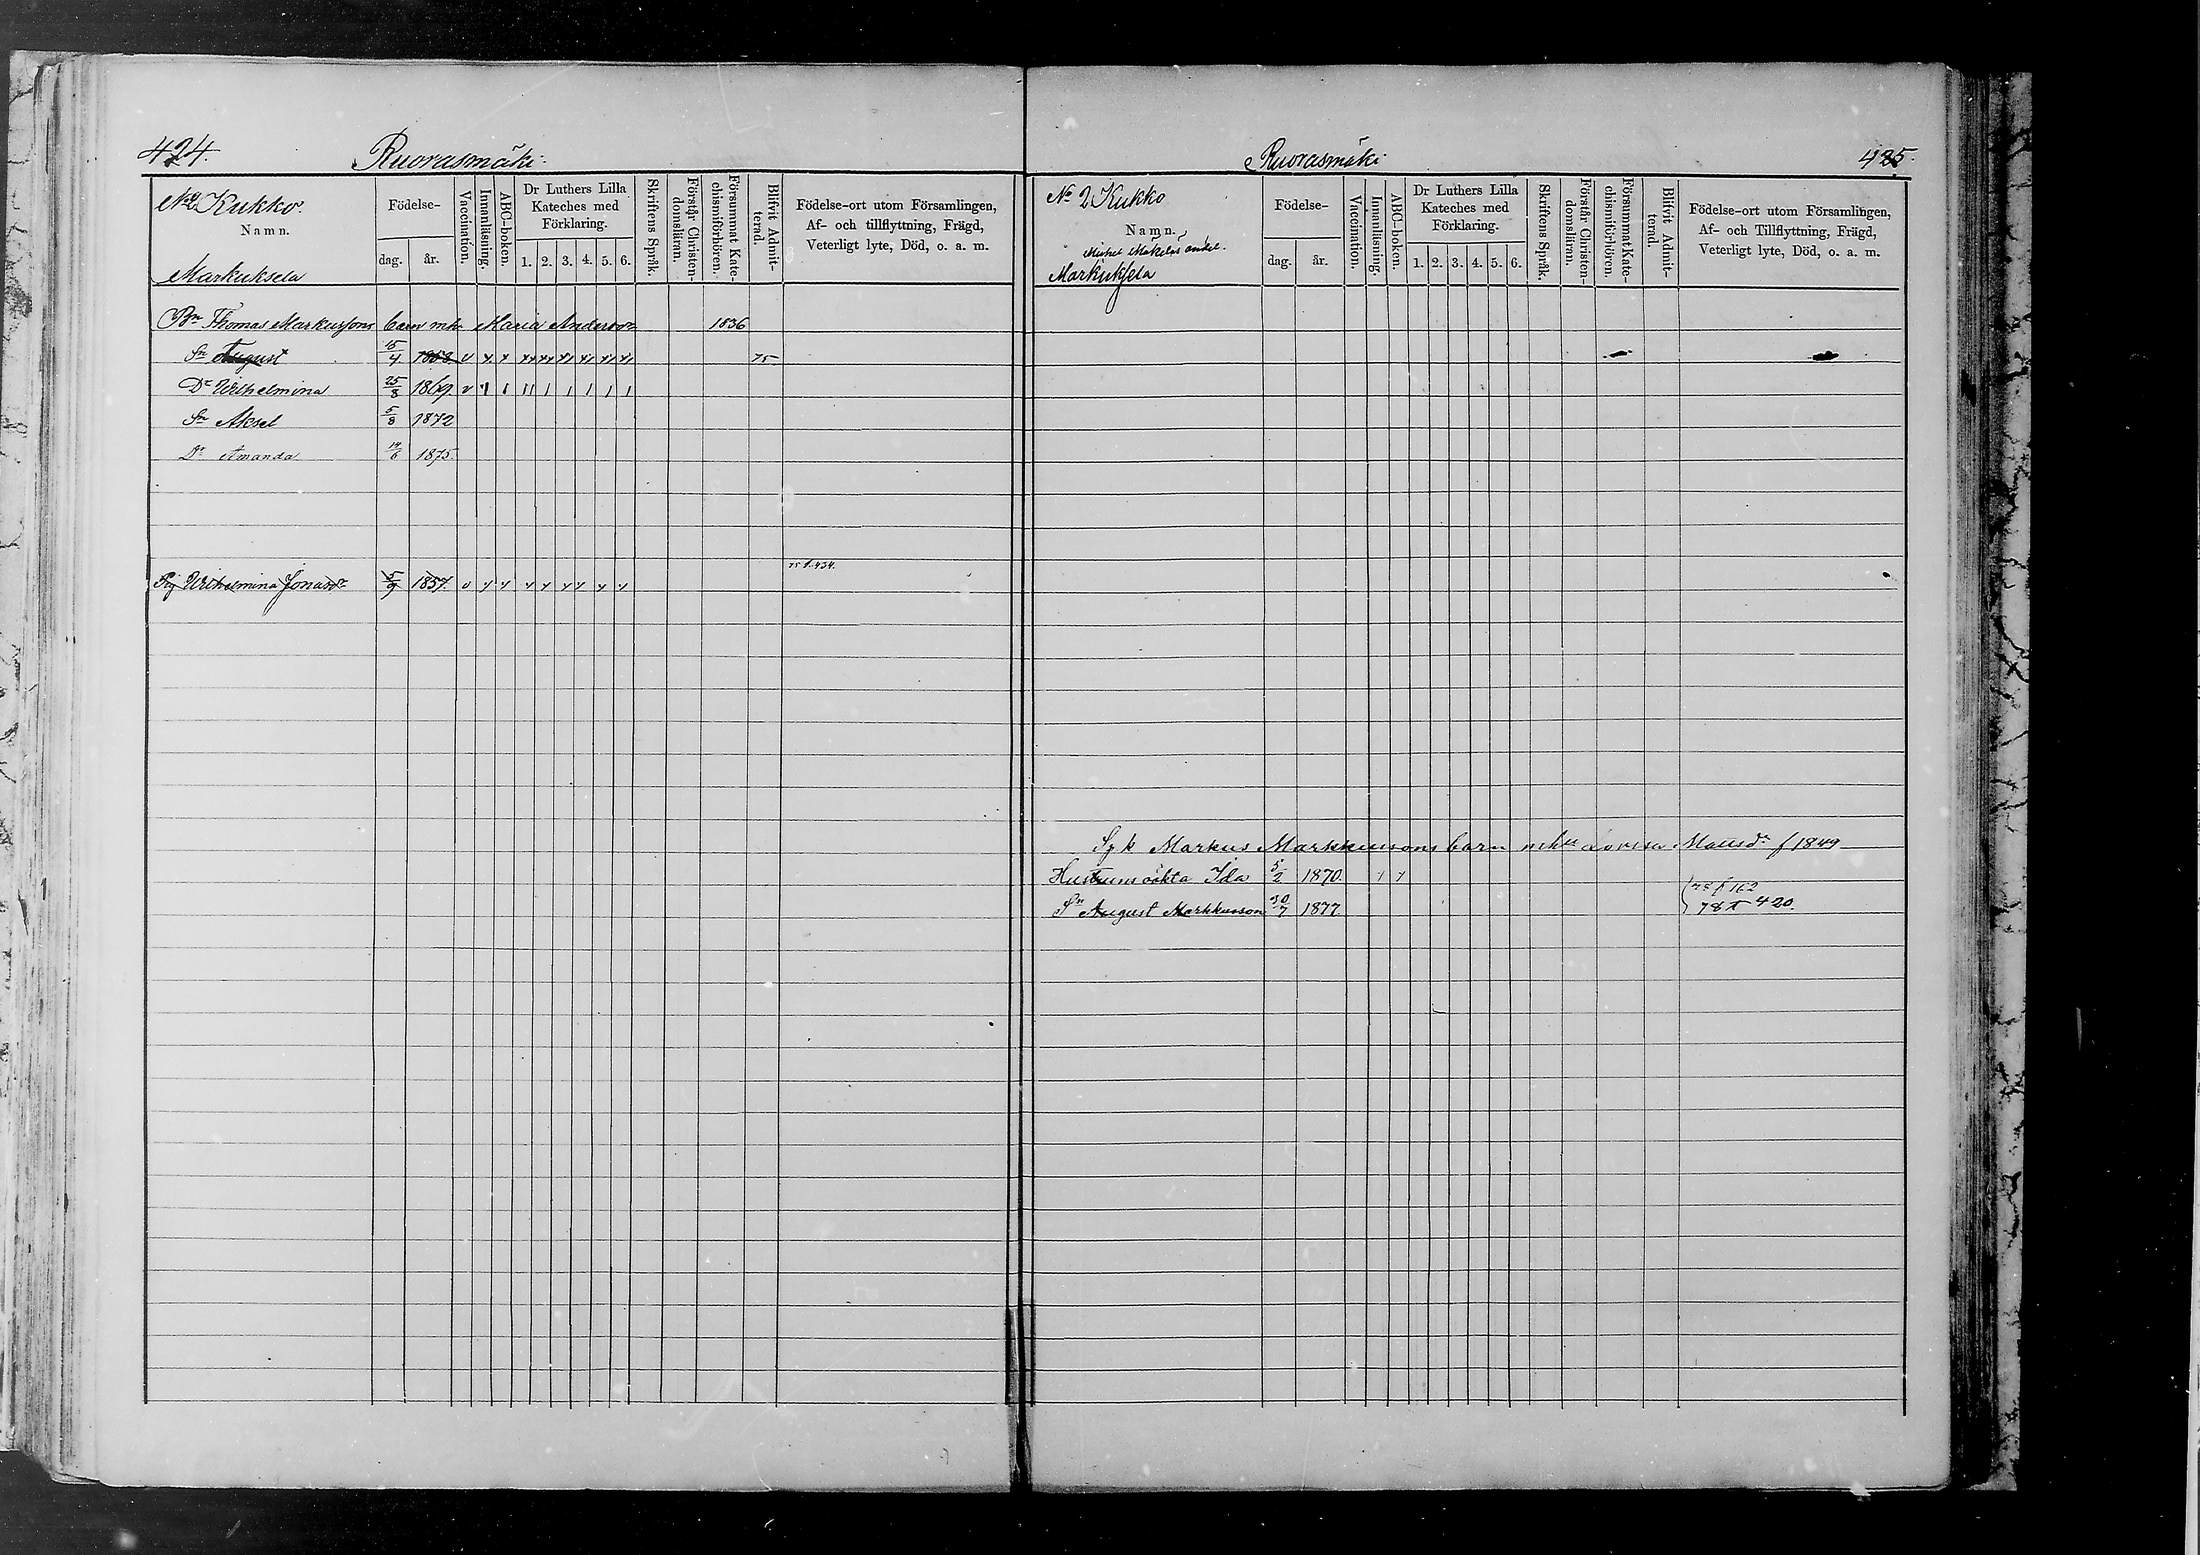 424.
Ruorasmäki
No 2 Kukko.
Namn.
Markuksela
Födelse-
dag.
år.
Vaccination.
Innanläsning.
ABC-boken.
Dr Luthers Lilla
Kateches med
Förklaring.
1. 2. 3. 4. 5. 6.
Skriftens Språk.
Förstår Christen-
domsläran.
Försummat Kate-
chismiförhören.
Blifvit Admit-
terad.
Födelse-ort utom Församlingen,
Af- och tillflyttning, Frägd,
Veterligt lyte, Död, o. a. m.
Bn Thomas Markussons barn m h Maria Andersdr 1836
Sn August 15/4 1858 75
Dr Wilhelmina 25/8 1869.
Sn Aksel 5/8 1872
Dr Amanda 14/6 1875.
75 f. 434.
Pig Wilhelmina Jonasdr 5/9 1857.
Ruorasmäki
425.
No 2 Kukko
Namn.
Michel Mäkeläs andel.
Markuksela
Födelse-
dag.
år.
Vaccination.
Innanläsning.
ABC-boken.
Dr Luthers Lilla
Kateches med
Förklaring.
1. 2. 3. 4. 5. 6.
Skriftens Språk.
Förstår Christen-
domsläran.
Försummat Kate-
chismiförhören.
Blifvit Admit-
terad.
Födelse-ort utom Församlingen,
Af- och Tillflyttning, Frägd,
Veterligt lyte, Död, o. a. m.
Markus Markkussons barn Lovisa Mattsdr f 1849
Hustruns oäkta Ida 5/2 1870.
78 f 162
Sn August Markkusson 30/7 1877. 420.